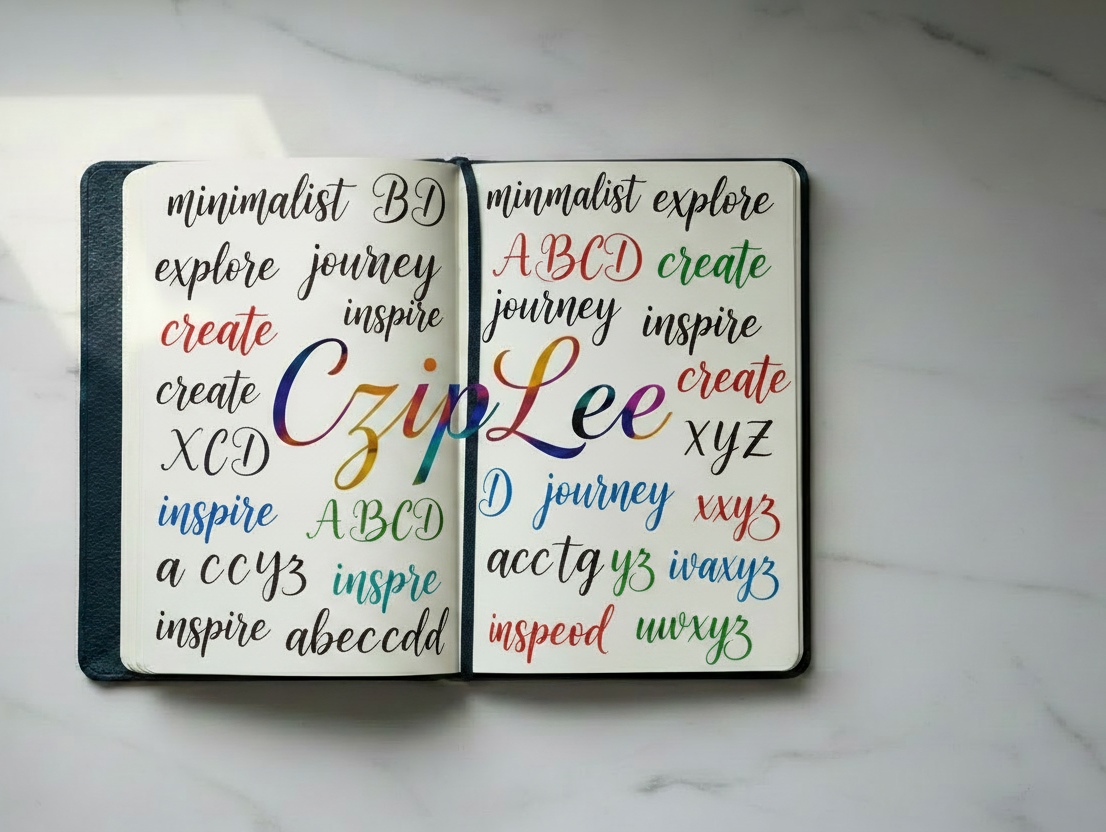 minimalist BD
explore journey
inspire
create
create
XCD
inspire ABCD
a ccyz inspre
inspire abeccdd
CzipLee
minmalist explore
ABCD create
journey inspire
create
XYZ
D journey xxyz
acctg yz ivaxyz
inspeod uwxyz